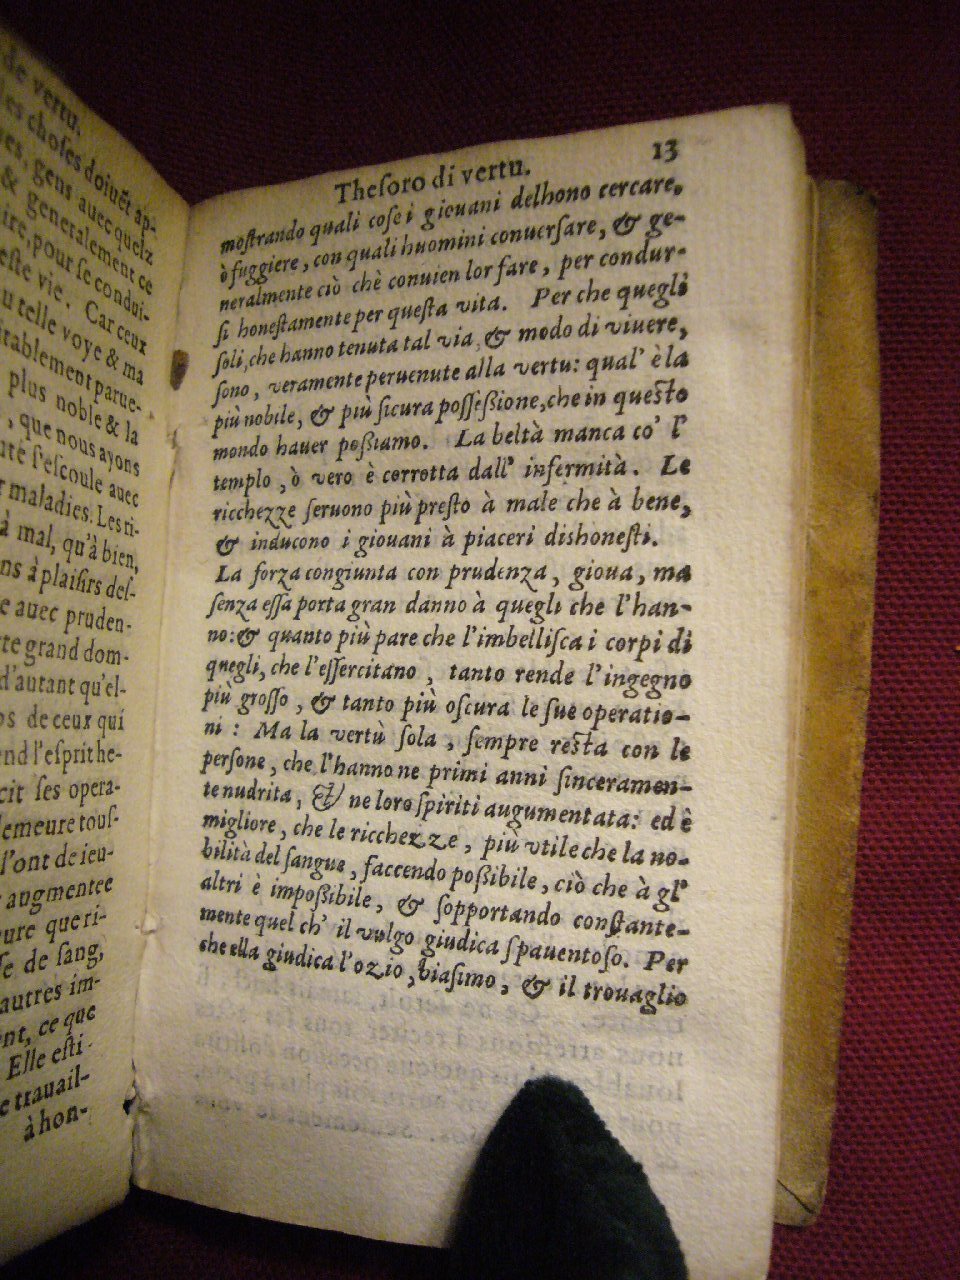 de vertu.
choses doiuēt ap-
gens auec quelz
& generalement ce
pour se condui-
ste vie. Car ceux
telle voye & ma
rablement parue-
plus noble & la
, que nous ayons
s'escoule auec
maladies. Les ri-
à mal, qu'à bien,
à plaisirs des-
auec pruden-
te grand dom-
d'autant qu'el-
de ceux qui
l'esprit he-
cit ses opera-
demeure tous-
l'ont de ieu-
augmentee
que ri-
de sang,
autres im-
ce que
Elle esti-
trauail-
à hon-
Thesoro di vertu. 13
mostrando quali cose i gieuani delhono cercare,
ò fuggiere, con quali huomini conuersare, & ge-
neralmente ciò chè conuien lor fare, per condur-
si honestamente per questa vita. Per che quegli
soli, che hanno tenuta tal via, & modo di viuere,
sono, veramente peruenute alla vertu: qual' è la
più nobile, & più sicura possessione, che in questo
mondo hauer possiamo. La beltà manca co' l'
templo, ò vero è corrotta dall' infermità. Le
ricchezze seruono più presto à male che à bene,
& inducono i giouani à piaceri dishonesti.
La forza congiunta con prudenza, gioua, ma
senza essa porta gran danno à quegli che l'han-
no: & quanto più pare che l'imbellisca i corpi di
quegli, che l'essercitano, tanto rende l'ingegno
più grosso, & tanto più oscura le sue operatio-
ni: Ma la vertù sola, sempre resta con le
persone, che l'hanno ne primi anni sinceramen-
te nudrita, & ne loro spiriti augumentata: ed è
migliore, che le riccherze, più vtile che la no-
bilità del sangue, faccendo possibile, ciò che à gl'
altri è impossibile, & sopportando constante-
mente quel ch' il vulgo giudica spauentoso. Per
che ella giudica l'ozio, biasimo, & il trouaglio